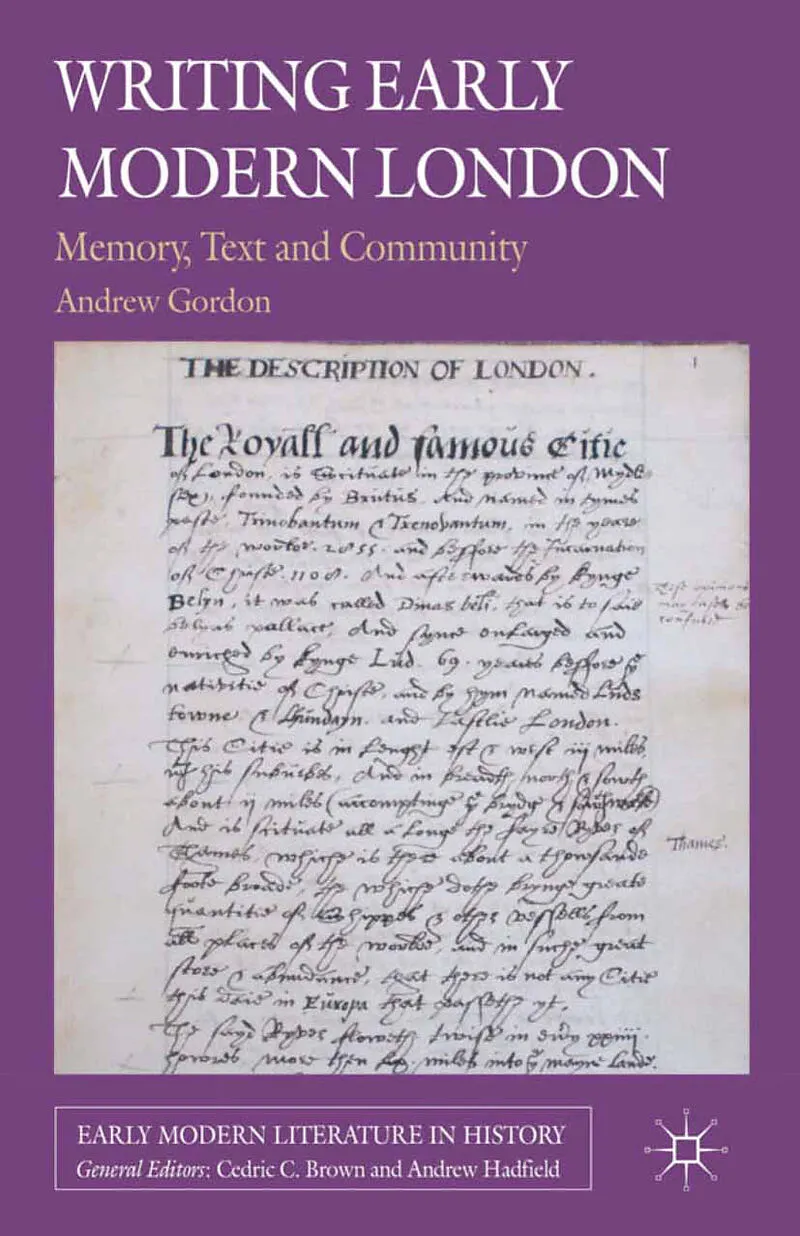 WRITING EARLY
MODERN LONDON
Memory, Text and Community
Andrew Gordon
THE DESCRIPTION OF LONDON.
1
The Royall and famous Citie
of London, is Scituate in the province of Mydle
sex, founded by Brutus, And named in tymes
paste, Trinobantum & Trenovantum, in the yeare
of the worlde. 2855. and beffore the Incarnation
of Christe. 1108. And afterwards by kynge
Belyn, it was called Dinas beli, that is to saie
belyns pallace, And synce enlarged and
enriched by kynge Lud. 69. yeares beffore ye
nativitie of Christe, and by hym named Luds
towne & Lhundayn. and Lastlie London.
This Citie is in Lenght est & west iii miles
his suburbes, And in breadth north & sowth
about ii miles (accomptinge ye brydg & sowthwarke)
And is scituate all a longe the fayre Ryver of
Thames, whiche is there about a thowsande
Thames.
foote broade, the which dothe brynge greate
quantitie of shippes & other vessells from
all places of the worlde, and in suche great
store & abundance, that there is not any Citie
this daie in Europa that passethe yt.
The sayd Ryver floweth twise in every xxiiii.
howres more then lx. miles into ye mayne Lande.
EARLY MODERN LITERATURE IN HISTORY
General Editors: Cedric C. Brown and Andrew Hadfield